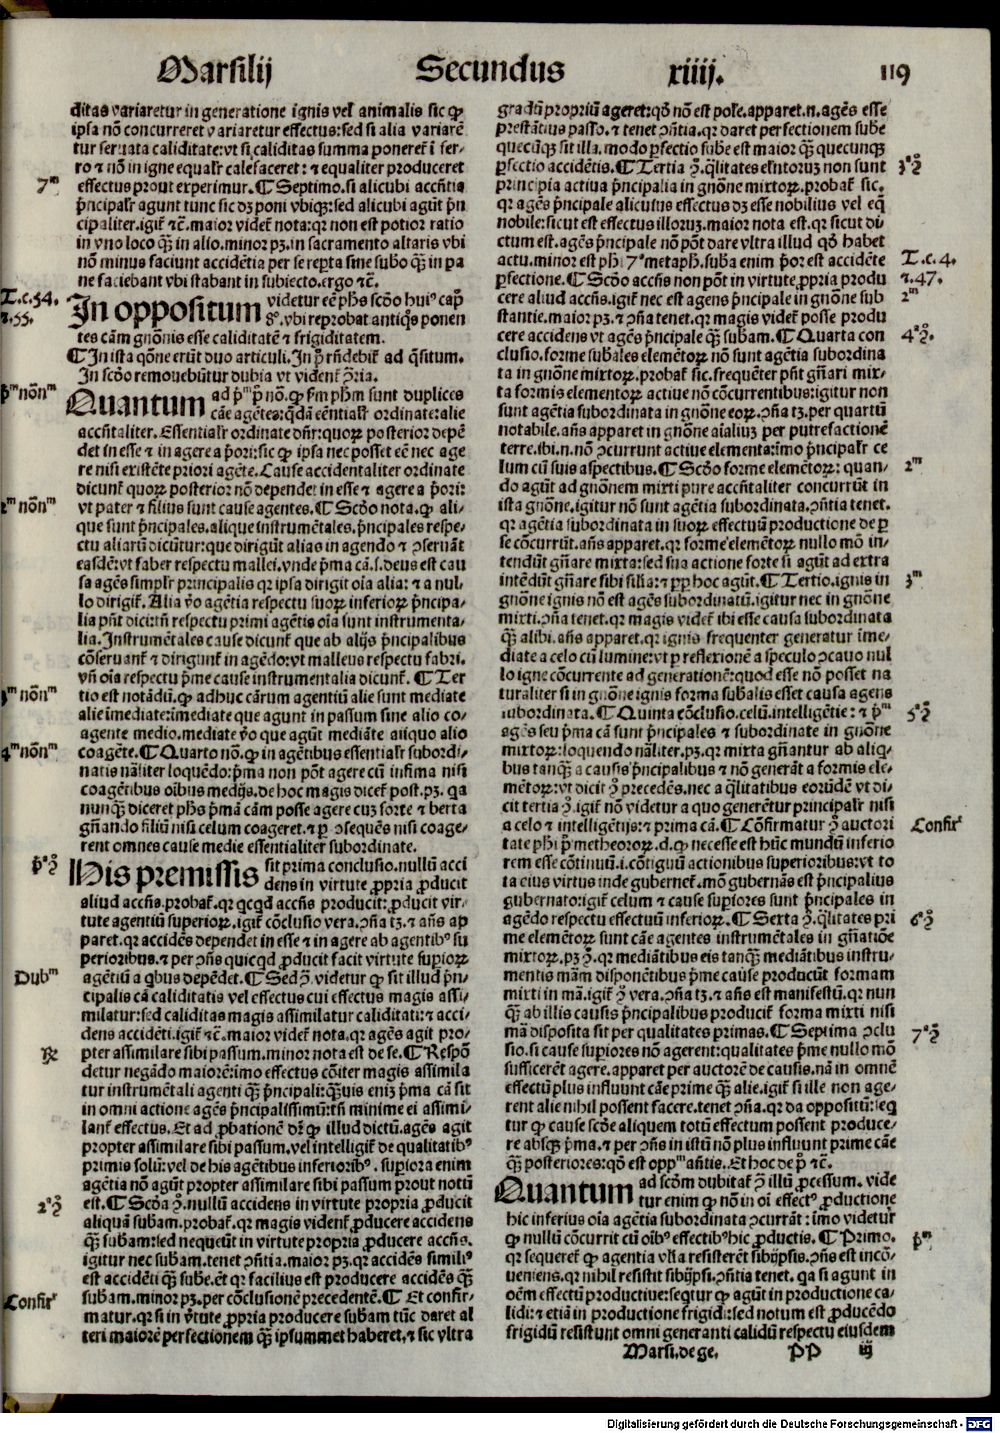 Marsilij Secundus xiiij. 119
ditas variaretur in generatione ignis vel animalis sic ꝙ
ipsa nō concurreret variaretur effectus: sed si alia variarē
tur seruata caliditate: vt si caliditas summa poneret̉ ī fer⸗
ro ⁊ nō in igne equalr̄ calefaceret: ⁊ equaliter produceret
7ᵐ effectus prout experimur. ¶ Septimo. si alicubi accn̄tia
p̄ncipalr̄ agunt tunc sic dꝫ poni vbiqꝫ: sed alicubi agūt p̄n
cipaliter. igit̉ ⁊c̄. maior videt̉ nota: qꝛ non est potior ratio
in vno loco qꝫ̄ in alio. minor pꝫ. in sacramento altaris vbi
nō minus faciunt accidētia per se rep̄ta sine subō qꝫ̄ in pa
ne faciebant vbi stabant in subiecto. ergo ⁊c̄.
T.c.54. ⁊.55. In oppositum videtur eē ph̄s scōo hui⁹ cap̄
8°. vbi reprobat antiq̄s ponen
tes cām gnōnis esse caliditatē ⁊ frigiditatem.
¶ In ista qōne erūt duo articuli. In p̄ rn̄debit̉ ad q̄situm.
In scōo remouebūtur dubia vt vident̉ ꝯ̄ria.
p̄ᵐ nōnᵐ Quantum ad p̄ᵐ p̄ nō. ꝙ s̄m ph̄m sunt duplices
cāe agētes: q̄dā eēntialr̄ ordinate: alie
accn̄taliter. Essentialr̄ ordinate dn̄r: quoꝝ posterior depē
det in esse ⁊ in agere a p̄ori: sic ꝙ ipsa nec posset eē nec age
re nisi existēte priori agēte. Cause accidentaliter ordinate
dicunt̉ quoꝝ posterior nō dependet in esse ⁊ agere a p̄ori:
2ᵐ nōnᵐ vt pater ⁊ filius sunt cause agentes. ¶ Scōo nota. ꝙ ali⸗
que sunt p̄ncipales. alique instrumētales. p̄ncipales respe⸗
ctu aliarū dicūtur: que dirigūt alias in agendo ⁊ ꝯseruāt
easdē: vt faber respectu mallei. vnde p̄ma cā. s. deus est cau
sa agēs simplr̄ principalis qꝛ ipsa dirigit oīa alia: ⁊ a nul⸗
lo dirigit̉. Alia v̄o agētia respectu suoꝝ inferioꝝ p̄ncipa⸗
lia pn̄t dici: tn̄ respectu primi agētis oīa sunt instrumenta⸗
lia. Instrumētales cause dicunt̉ que ab alijs p̄ncipalibus
cōseruant̉ ⁊ dirigunt̉ in agēdo: vt malleus respectu fabri.
vn̄ oīa respectu p̄me cause instrumentalia dicunt̉. ¶ Ter
3ᵐ nōnᵐ tio est notādū. ꝙ adhuc cārum agentiū alie sunt mediate
alie īmediate: īmediate que agunt in passum sine alio co⸗
agente medio. mediate v̄o que agūt mediāte aliquo alio
4ᵐ nōnᵐ coagēte. ¶ Quarto nō. ꝙ in agētibus essentialr̄ subordi⸗
natis nāliter loquēdo: p̄ma non pōt agere cū infima nisi
coagētibus oībus medijs. de hoc magis dicet̉ post. pꝫ. qa
nunquā diceret ph̄s p̄mā cām posse agere cuꝫ sorte ⁊ berta
gn̄ando filiū nisi celum coageret. ⁊ ꝑ ꝯsequēs nisi coage⸗
rent omnes cause medie essentialiter subordinate.
p̄ᵃ ꝯ̄ His premissis sit prima conclusio. nullū acci
dens in virtute ꝓpria ꝓducit
aliud accn̄s. probat̉. qꝛ qcqd̄ accn̄s producit: ꝓducit vir⸗
tute agentiū superioꝝ. igit̉ cōclusio vera. ꝯn̄a tꝫ. ⁊ an̄s ap
paret. qꝛ accidēs dependet in esse ⁊ in agere ab agentib⁹ su
perioribus. ⁊ per ꝯn̄s quicqd̄ ꝓducit facit virtute supioꝝ
Dubᵐ agētiū a qbus depēdet. ¶ Sed ꝯ̄. videtur ꝙ sit illud p̄n⸗
cipalis cā caliditatis vel effectus cui effectus magis assi⸗
milatur: sed caliditas magis assimilatur caliditati: ⁊ acci⸗
dens accidēti. igit̉ ⁊c̄. maior videt̉ nota. qꝛ agēs agit pro⸗
℞ pter assimilare sibi passum. minor nota est de se. ¶ Respō
detur negādo maiorē: īmo effectus cōiter magis assimila
tur instrumētali agenti qꝫ̄ p̄ncipali: qꝫ̄uis eniꝫ p̄ma cā sit
in omni actione agēs p̄ncipalissimū: tn̄ minime ei assimi⸗
lant̉ effectus. Et ad ꝓbationē dr̄ ꝙ illud dictū. agēs agit
propter assimilare sibi passum. vel intelligit̉ de qualitatib⁹
primis solū: vel de his agētibus inferiorib⁹. supiora enim
agētia nō agūt propter assimilare sibi passum prout notū
2ᵃ ꝯ̄ est. ¶ Scōa ꝯ̄. nullū accidens in virtute propria ꝓducit
aliquā subam. probat̉. qꝛ magis vident̉ ꝓducere accidens
qꝫ̄ subam: sed nequeūt in virtute propria ꝓducere accn̄s.
igitur nec subam. tenet ꝯn̄tia. maior pꝫ. qꝛ accidēs simili⁹
est accidēti qꝫ̄ sube. ēt qꝛ facilius est producere accidēs qꝫ̄
Confir̄ subam. minor pꝫ. per cōclusionē precedentē. ¶ Et confir⸗
matur. qꝛ si in v̄tute ꝓpria producere subam tūc daret al
teri maiorē perfectionem qꝫ̄ ipsummet haberet. ⁊ sic vltra
gradū propriū ageret: qd̄ nō est pole. apparet. n. agēs esse
prestātius passo. ⁊ tenet ꝯn̄tia. qꝛ daret perfectionem sube
quecūqꝫ sit illa. modo ꝑfectio sube est maior qꝫ̄ quecunqꝫ
3ᵃ ꝯ̄ ꝑfectio accidētis. ¶ Tertia ꝯ̄. q̄litates eln̄toruꝫ non sunt
principia actiua p̄ncipalia in gnōne mixtoꝝ. probat̉ sic.
qꝛ agēs p̄ncipale alicuius effectus dꝫ esse nobilius vel eq̄
nobile: sicut est effectus illoruꝫ. maior nota est. qꝛ sicut di
ctum est. agēs p̄ncipale nō pōt dare vltra illud qd̄ habet
T.c.4. actu. minor est ph̄i 7ᵃ metaph̄. suba enim p̄or est accidēte
⁊.47. ꝑfectione. ¶ Scōo accn̄s non pōt in virtute ꝓpria produ
2ᵐ cere aliud accn̄s. igit̉ nec est agens p̄ncipale in gnōne sub
stantie. maior pꝫ. ⁊ ꝯn̄a tenet. qꝛ magis videt̉ posse produ
4ᵃ ꝯ̄. cere accidens vt agēs p̄ncipale qꝫ̄ subam. ¶ Quarta con
clusio. forme subales elemētoꝝ nō sunt agētia subordina
ta in gnōne mixtoꝝ. probat̉ sic. frequēter pn̄t gn̄ari mix⸗
ta formis elementoꝝ actiue nō cōcurrentibus: igitur non
sunt agētia subordinata in gnōne eoꝝ. ꝯn̄a tꝫ. per quartū
notabile. an̄s apparet in gnōne aīaliuꝫ per putrefactionē
terre. ibi. n. nō ꝯcurrunt actiue elementa: īmo p̄ncipalr̄ ce
2ᵐ lum cū suis aspectibus. ¶ Scōo forme elemētoꝝ: quan⸗
do agūt ad gnōnem mixti pure accn̄taliter concurrūt in
ista gnōne. igitur nō sunt agētia subordinata. ꝯn̄tia tenet.
qꝛ agētia subordinata in suoꝝ effectuū productione de ꝑ
se cōcurrūt. an̄s apparet. qꝛ forme elemētoꝝ nullo mō in⸗
tendūt gn̄are mixta: sed sua actione forte si agūt ad extra
3ᵐ intēdūt gn̄are sibi silia: ⁊ ꝓp̄ hoc agūt. ¶ Tertio. ignis in
gnōne ignis nō est agēs subordinatū. igitur nec in gnōne
mixti. ꝯn̄a tenet. qꝛ magis videt̉ ibi esse causa subordinata
qꝫ̄ alibi. an̄s apparet. qꝛ ignis frequenter generatur īme⸗
diate a celo cū lumine: vt ꝑ reflexionē a speculo ꝯcauo nul
lo igne cōcurrente ad generationē: quod esse nō posset na
turaliter si in gnōne ignis forma subalis esset causa agens
5ᵃ ꝯ̄ subordinata. ¶ Quinta cōclusio. celū. intelligētie: ⁊ p̄ᵐ
agēs seu p̄ma cā sunt p̄ncipales ⁊ subordinate in gnōne
mixtoꝝ: loquendo nāliter. pꝫ. qꝛ mixta gn̄antur ab aliq⸗
bus tanqꝫ̄ a causis p̄ncipalibus ⁊ nō generāt̉ a formis ele⸗
mētoꝝ: vt dicit ꝯ̄ precedēs. nec a q̄litatibus eorūdē vt di⸗
cit tertia ꝯ̄. igit̉ nō videtur a quo generētur principalr̄ nisi
Confir̄ a celo ⁊ intelligētijs: ⁊ prima cā. ¶ Cōfirmatur ꝯ̄ auctori
tate ph̄i p̄ metheoroꝝ. d. ꝙ necesse est hūc mundū inferio
rem esse cōtinuū. i. cōtiguū actionibus superioribus: vt to
ta eius virtus inde gubernet̉. mō gubernās est p̄ncipalius
gubernato: igit̉ celum ⁊ cause supiores sunt p̄ncipales in
6ᵃ ꝯ̄ agēdo respectu effectuū inferioꝝ. ¶ Sexta ꝯ̄. q̄litates pri
me elemētoꝝ sunt cāe agentes instrumētales in gn̄atiōe
mixtoꝝ. pꝫ ꝯ̄. qꝛ mediātibus eis tanqꝫ̄ mediātibus instru⸗
mentis mām disponētibus p̄me cause producūt formam
mixti in mā. igit̉ ꝯ̄ vera. ꝯn̄a tꝫ. ⁊ an̄s est manifestū. qꝛ nun
qꝫ̄ ab illis causis p̄ncipalibus producit̉ forma mixti nisi
7ᵃ ꝯ̄ mā disposita sit per qualitates primas. ¶ Septima ꝯclu
sio. si cause supiores nō agerent: qualitates p̄me nullo mō
sufficerēt agere. apparet per auctorē de causis. nā in omnē
effectū plus influunt cāe prime qꝫ̄ alie. igit̉ si ille non age⸗
rent alie nihil possent facere. tenet ꝯn̄a. qꝛ da oppositū: seq
tur ꝙ cause scōe aliquem totū effectum possent produce⸗
re absqꝫ p̄ma. ⁊ per ꝯn̄s in istū nō plus influunt prime cāe
qꝫ̄ posteriores: qd̄ est oppᵐ an̄tis. Et hoc de p̄ ⁊c̄.
Quantum ad scōm dubitat̉ ꝯ̄ illū ꝓcessum. vide
tur enim ꝙ nō in oī effect⁹ ꝓductione
hic inferius oīa agētia subordinata ꝯcurrāt: īmo videtur
p̄ᵐ ꝙ nullū cōcurrit cū oīb⁹ effectib⁹ hic ꝓductis. ¶ Primo.
qꝛ sequeret̉ ꝙ agentia vlr̄a resisterēt sibijpsis. ꝯn̄s est incō⸗
ueniens. qꝛ nihil resistit sibijpsi. ꝯn̄tia tenet. qa si agunt in
oēm effectū productiue: seqtur ꝙ agūt in productione ca⸗
lidi: ⁊ etiā in productione frigidi: sed notum est ꝓducēdo
frigidū resistunt omni generanti calidū respectu eiusdem
Marsi. de ge. PP iij
Digitalisierung gefördert durch die Deutsche Forschungsgemeinschaft - DFG